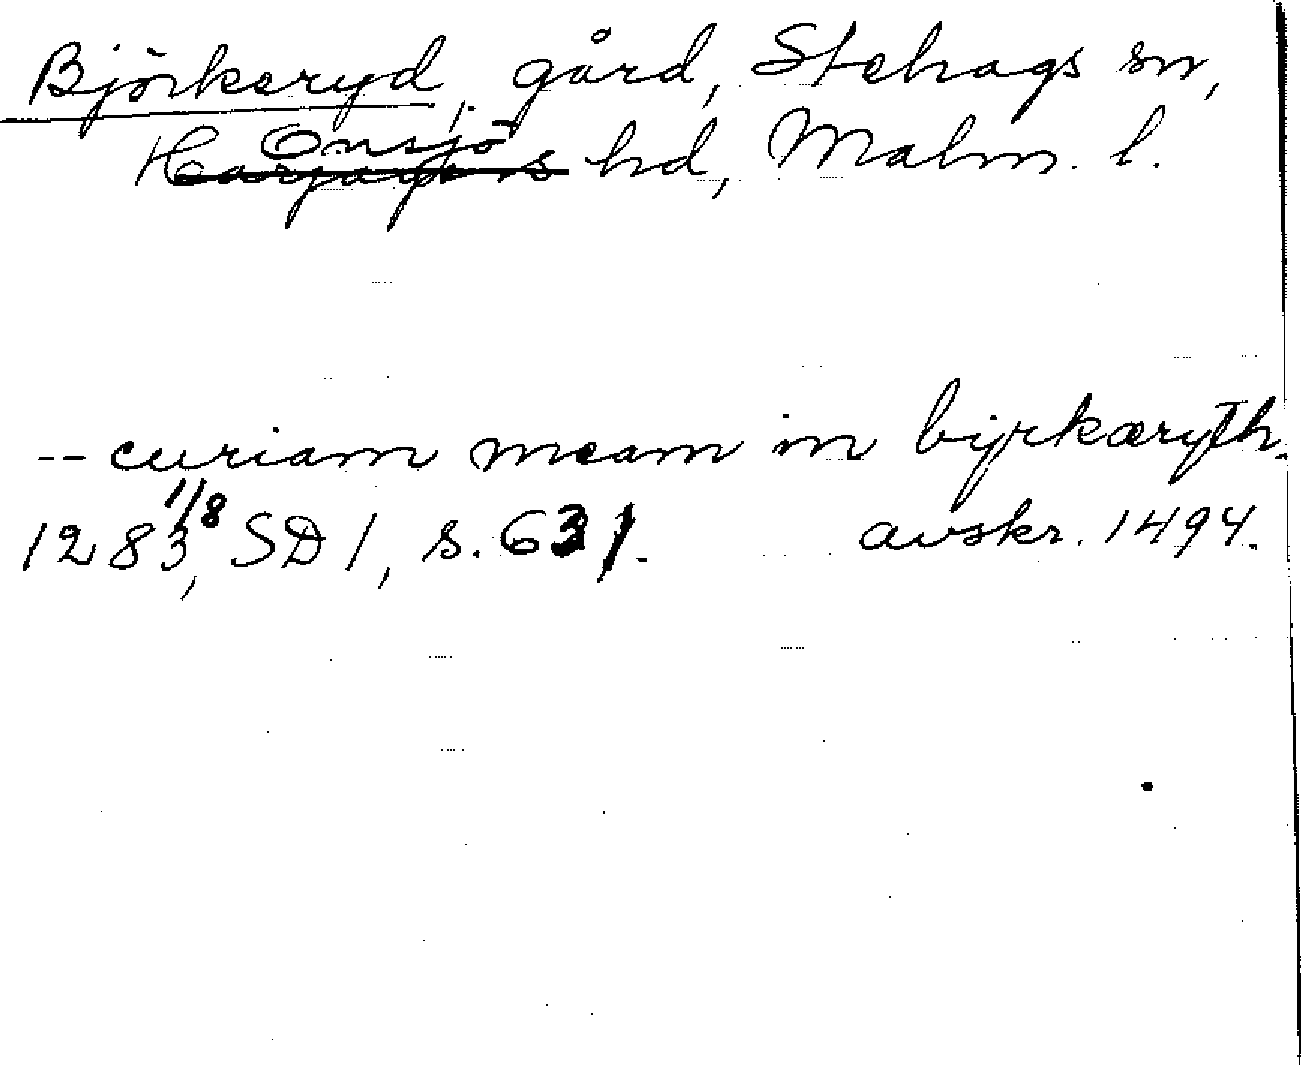 Björkeryd, gård, Stehags sn,
Onsjö
Harjagers hd, Malm. l.
-- curiam meam in byrkæryth.
1283 1/8, SD 1, s. 631. avskr. 1494.